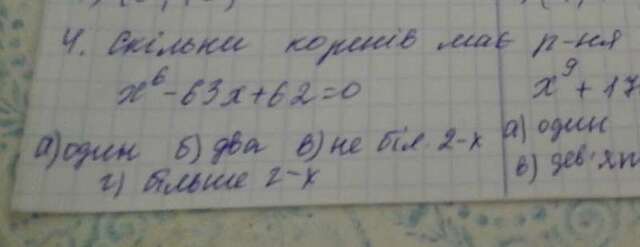 4. Скільки коренів має р-ня
x⁶-63x+62=0
а) один б) два в) не біл. 2-х
г) більше 2-х
x⁹+17
а) один
в) дев'ят